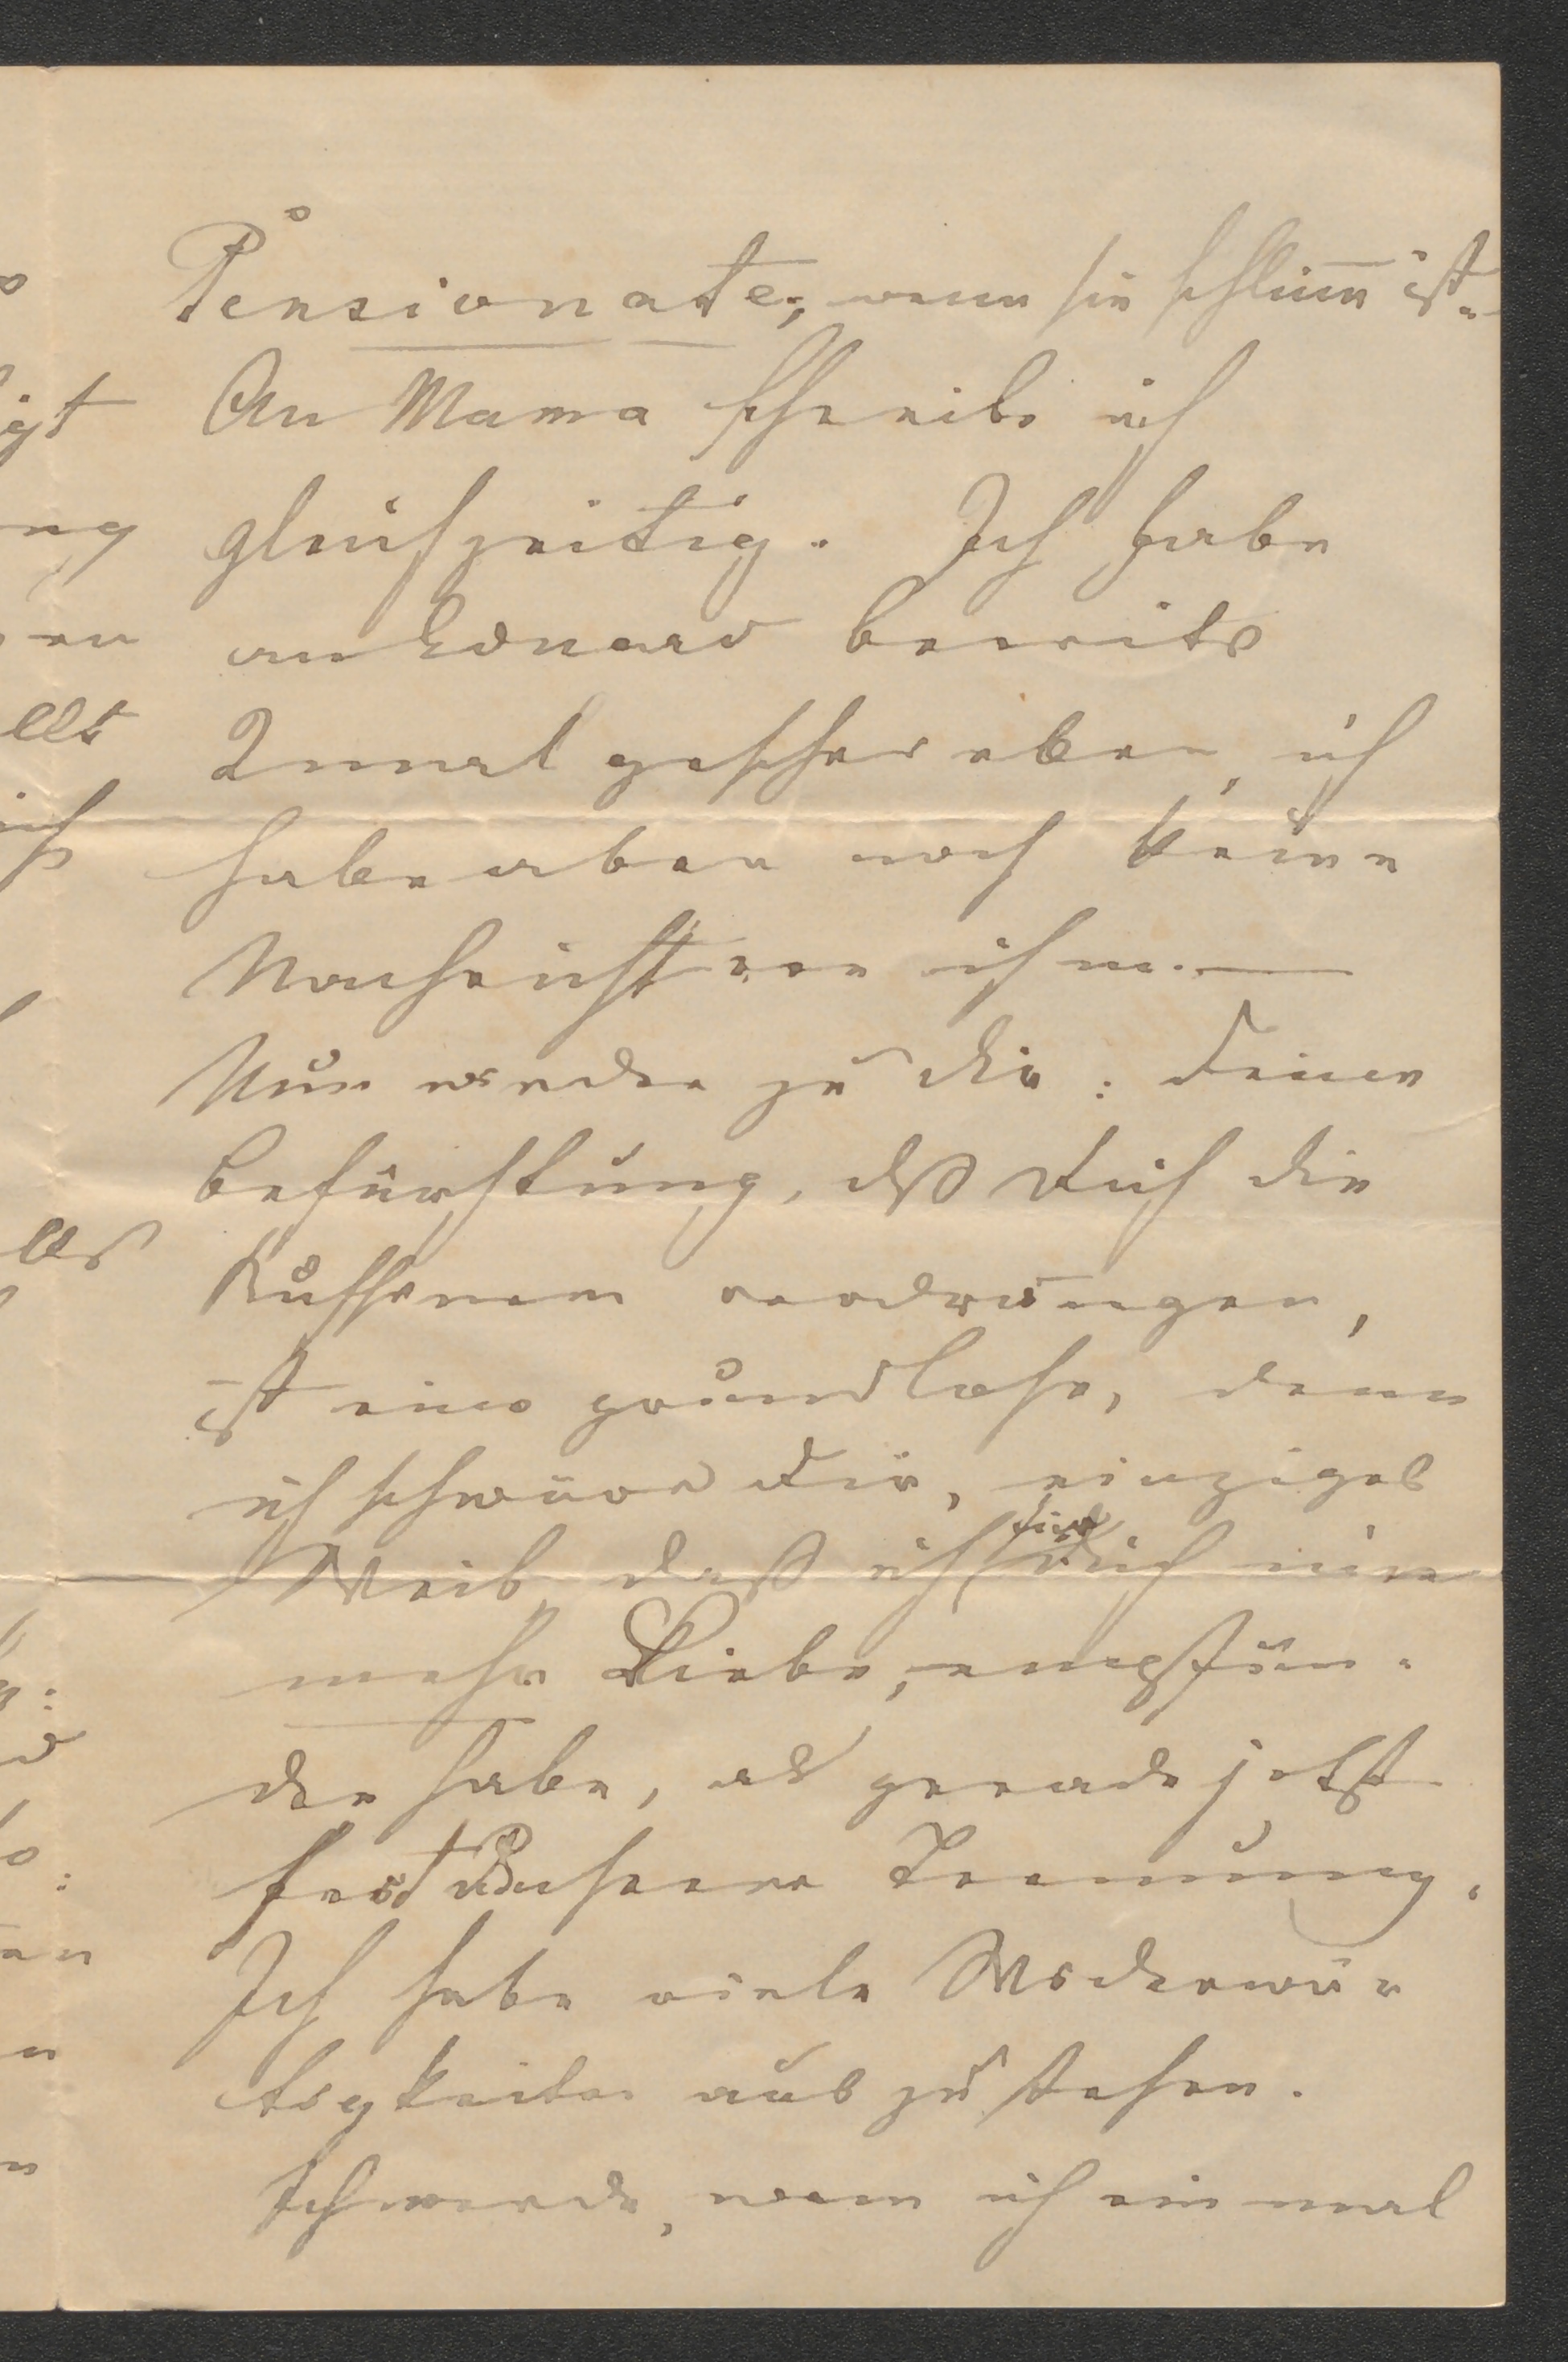 Pensionate, wenn sie schlimm ist.
An Mama schreibe ich
gleichzeitig. Ich habe
an Eduard bereits
2mal geschrieben, ich
habe aber noch keine
Nachricht von ihm. —
Nun wieder zu Dir: Deine
Befürchtung, daß Dich die
verdrängen,
ist eine grundlose, denn
ich schwöre Dir, einziges
Weib, daß ich für Dich nie
mehr Liebe, empfun-
den habe, als gerade jetzt
fast unserer Trennung.
Ich habe viele Widerwär
tigkeiten aus zu stehen.
Ich werde, wenn ich ein mal